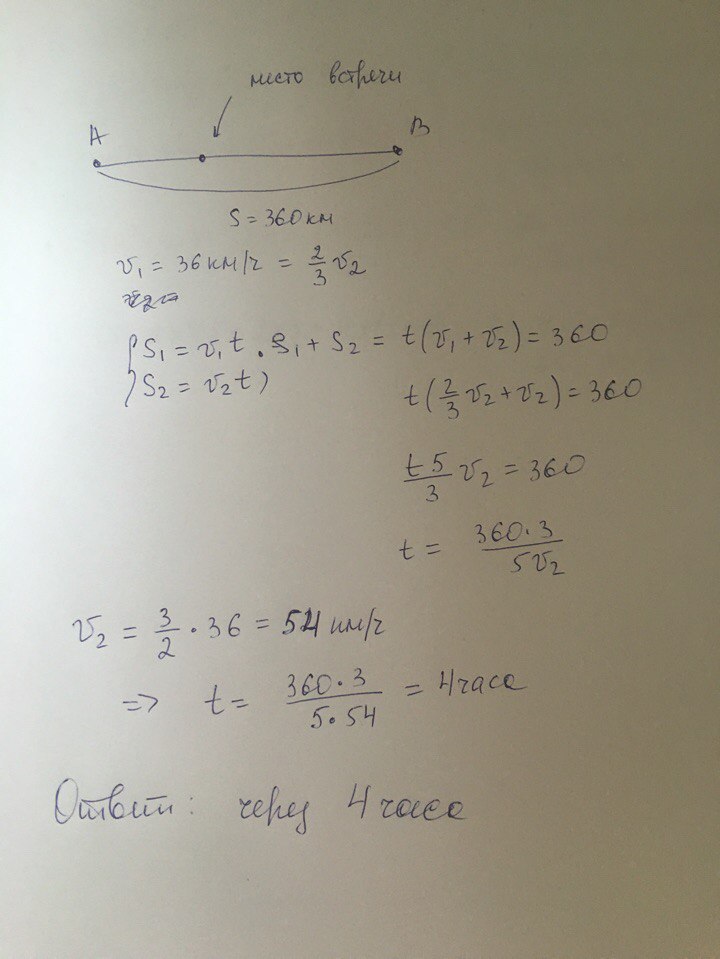 место встречи
A B
S = 360 км
v₁ = 36 км/ч = 2/3 v₂
{ S₁ = v₁t . S₁ + S₂ = t(v₁ + v₂) = 360
S₂ = v₂t )
t(2/3 v₂ + v₂) = 360
t5/3 v₂ = 360
t = 360·3/5v₂
v₂ = 3/2 · 36 = 54 км/ч
=> t = 360·3/5·54 = 4 часа
Ответ: через 4 часа